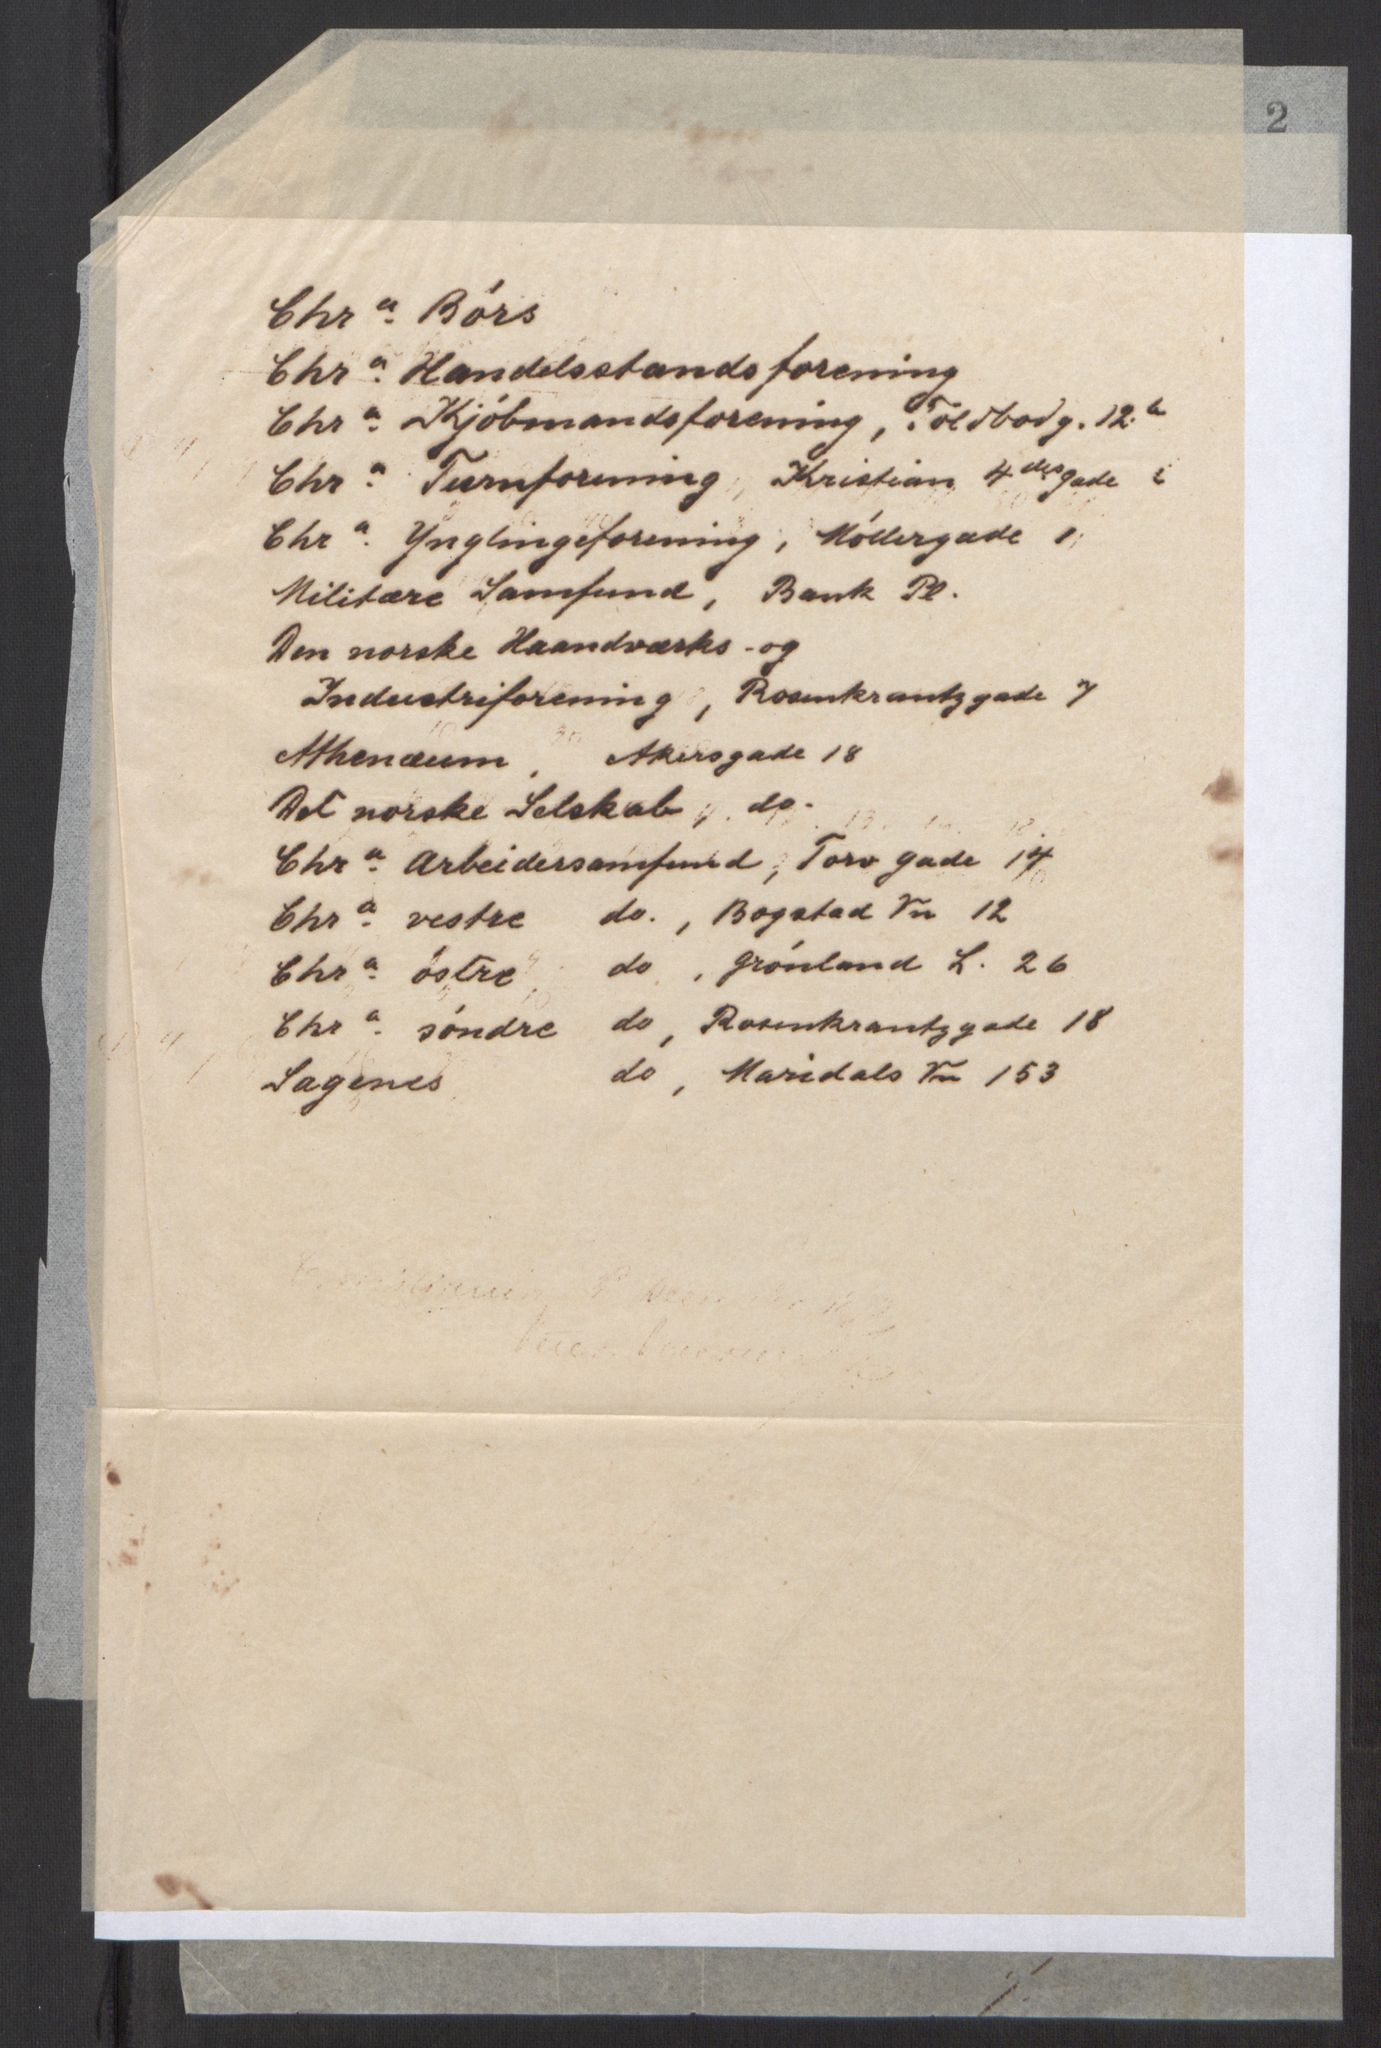 2
Chrª. Börs
Chrª. Handelsstandsforening
Chrª. Kjöbmandsforening, Toldbodg. 12.
Chrª. Turnforening, Kristian 4des gade
Chrª. Ynglingeforening, Möllergade
Militære Samfund, Bank Pl.
Den norske Haandværks- og
Industriforening, Rosenkrantzgade 7
Athenæum, Akersgade 18
Det norske Selskab, do.
Chrª. Arbeidersamfund, Torv gade 14
Chrª. vestre do., Bogstad Vn 12
Chrª. östre do, Grönland L. 26
Chrª. söndre do, Rosenkrantzgade 18
Sagenes do, Maridals Vn 153